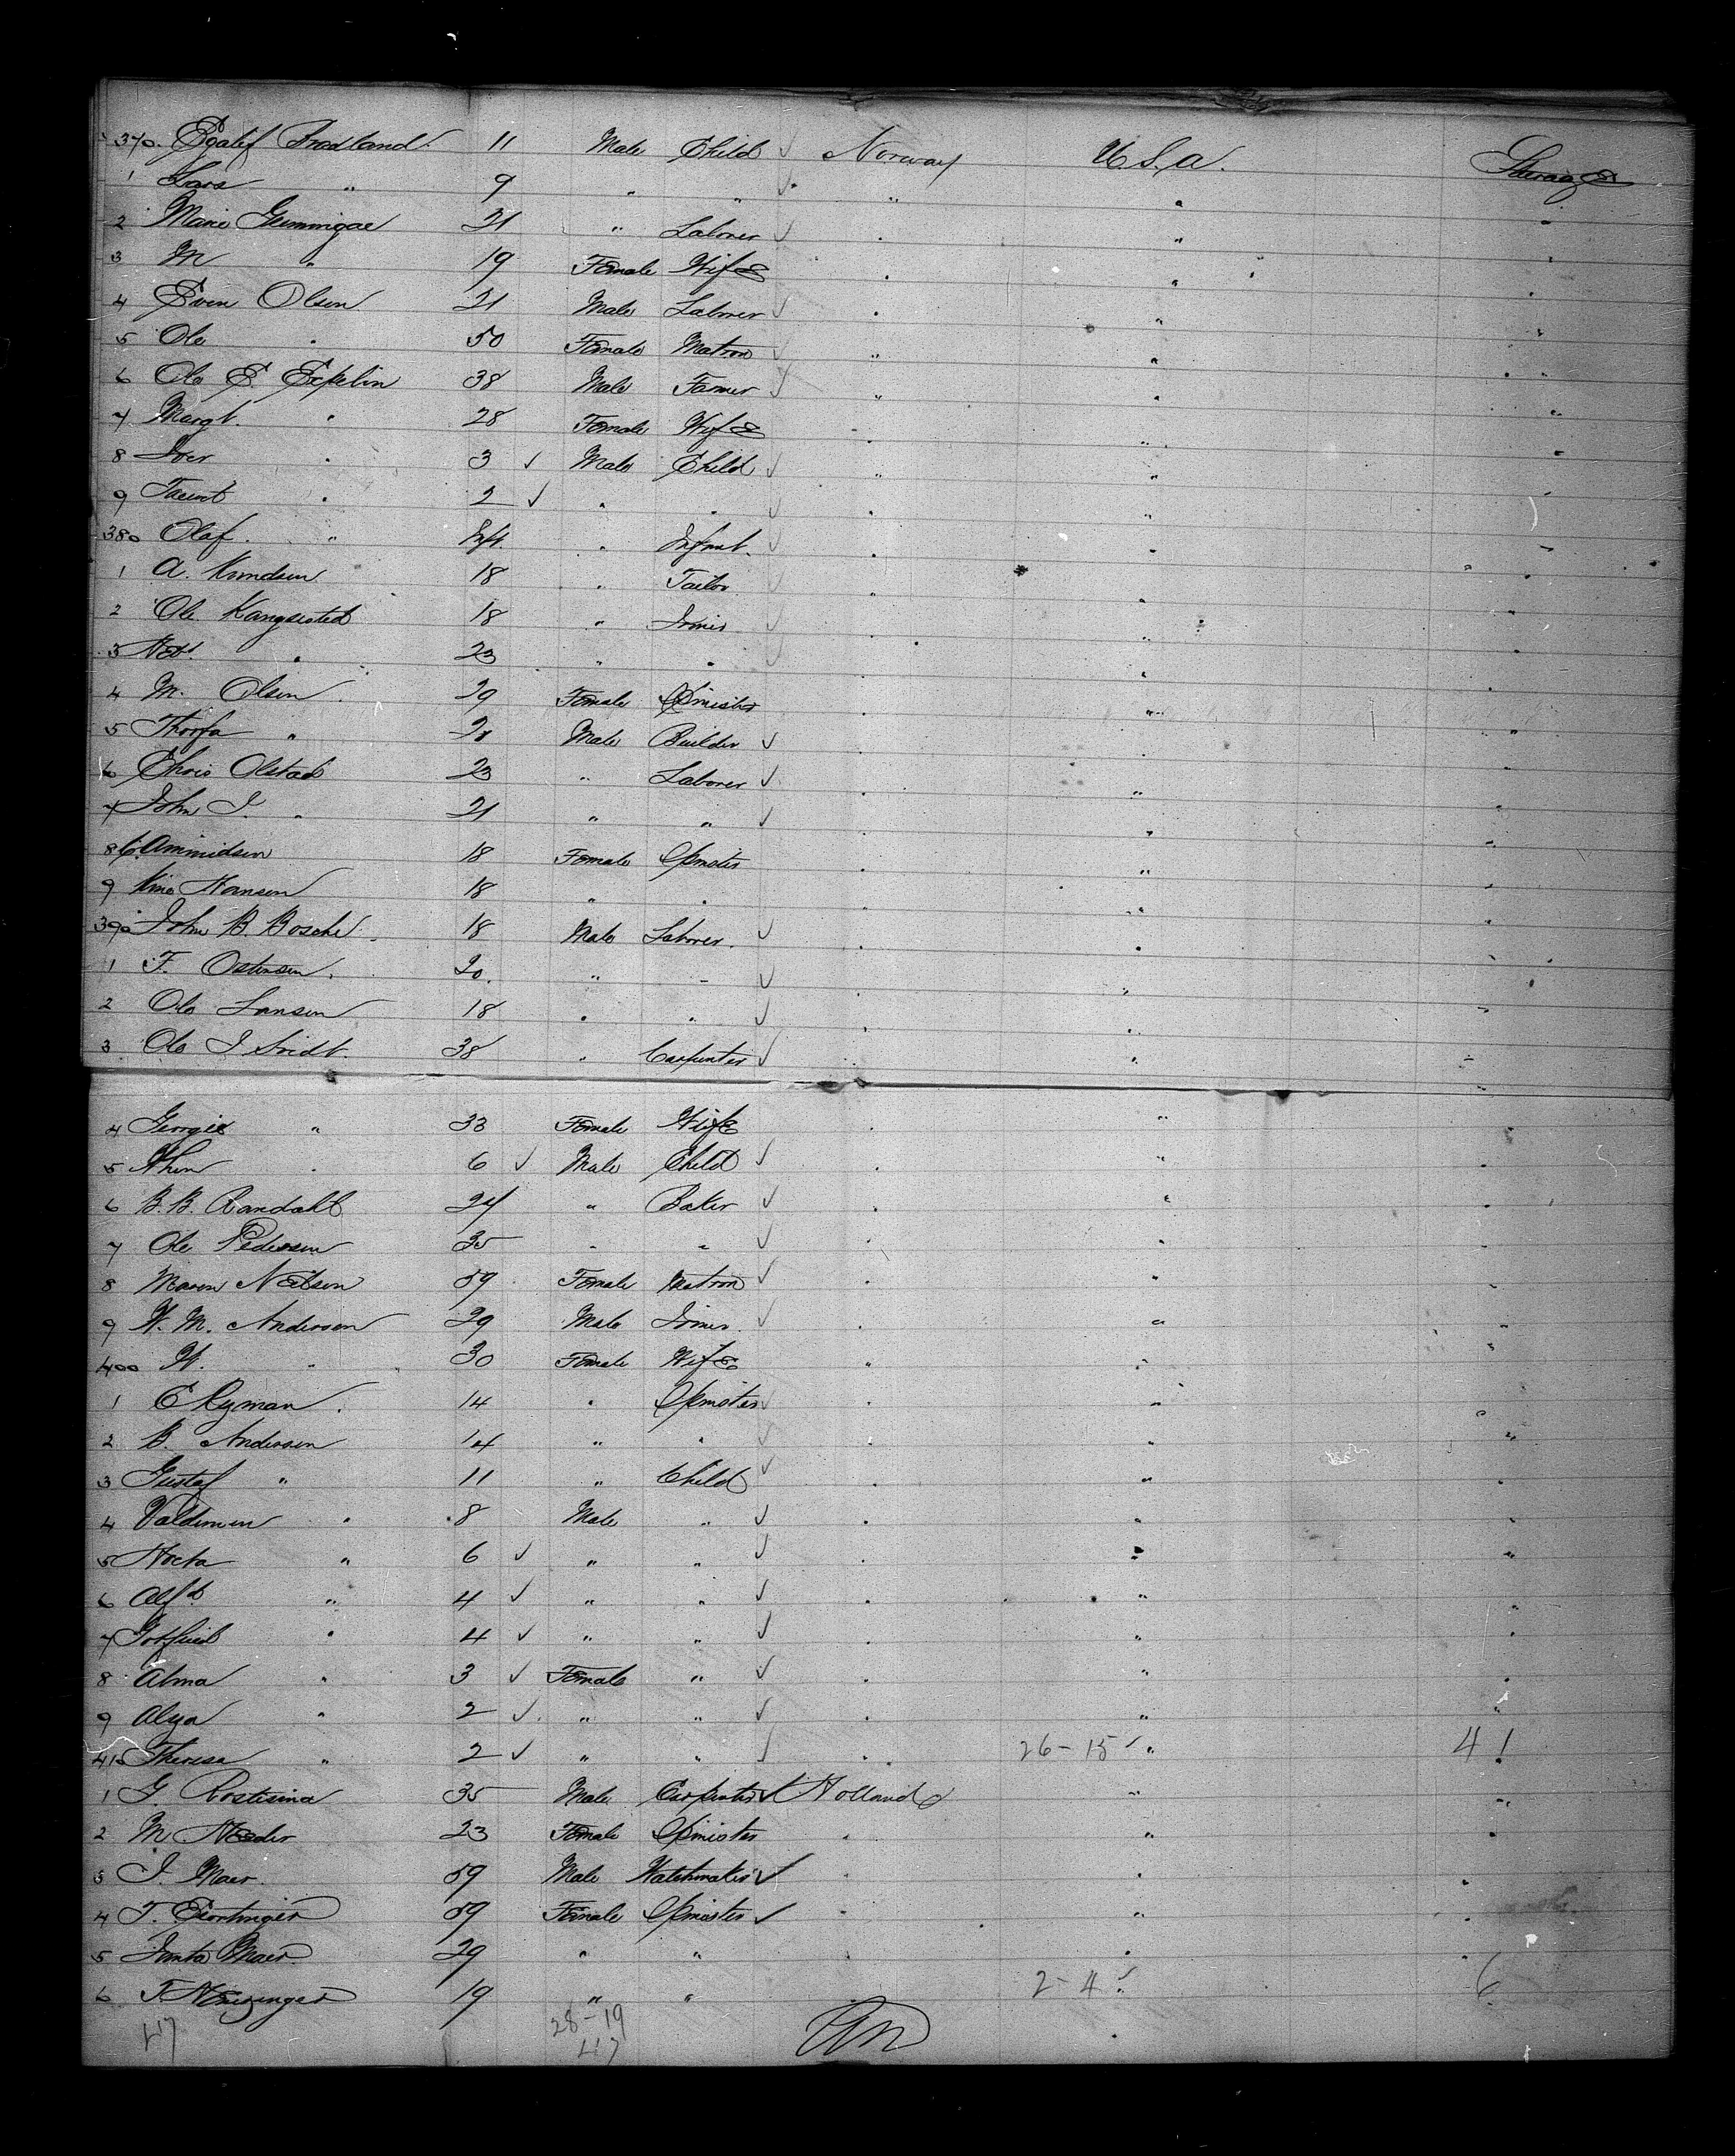 370. Egalif Bradland. 11 Male Child ✓ Norway U.S.A. Steerage
1 Lars " 9 " " ✓ " " "
2 Marie 21 " Laborer ✓ " " "
3 M " 19 Female Wife " " "
4 Even Olsen 21 Male Laborer ✓ " " "
5 Ole " 50 Female Matron ✓ " " "
6 Ole E. 38 Male Farmer ✓ " " "
7 Margt. " 28 Female Wife " " "
8 Iver " 3 ✓ Male Child ✓ " " "
9 " 2 ✓ " " ✓ " " "
380 Olaf. " Inft. " Infant. ✓ " " "
1 A. Knudsen 18 " Tailor ✓ " " "
2 Ole 18 " Joiner ✓ " " "
3 " 23 " " ✓ " " "
4 M. Olsen 29 Female Spinister " " "
5 " Male Builder ✓ " " "
6 Chris Olstad 23 " Laborer ✓ " " "
7 John J. " 21 " " ✓ " " "
8 C. Ammidsen 18 Female Spinster " " "
9 Hansen 18 " " " " "
390 John B. Bosche 18 Male Laborer. ✓ " " "
1 F. Ostensen. 20. " " ✓ " " "
2 Ole Larsen 18 " " ✓ " " "
3 Ole J. 38 " Carpenter ✓ " " "
4 Georgie " 33 Female Wife " " "
5 " 6 ✓ Male Child ✓ " " "
6 B. B. Randahl 24 " Baker ✓ " " "
7 Ole Pedersen 35 " " ✓ " " "
8 Maren Nelsen 59 Female Matron ✓ " " "
9 H. M. Andersen 29 Male Joiner. ✓ " " "
400 H. " 30 Female Wife " " "
1 C Ryman. 14 " Spinster ✓ " " "
2 B. Andersen 14 " " ✓ " " "
3 Gustaf " 11 " Child ✓ " " "
4 Valdemen " 8 Male " ✓ " " "
5 " 6 ✓ " " ✓ " " "
6 Alfd " 4 ✓ " " ✓ " " "
7 Gotfried " 4 ✓ " " ✓ " " "
8 Alma " 3 ✓ Female " ✓ " " "
9 Alya " 2 ✓ " " ✓ " " "
410 Theresa " 2 ✓ " " ✓ " 26-15 ✓ " 41
1 G. 35 Male Carpenter ✓ Holland " "
2 M 23 Female Spinister " " "
3 J. Maer. 59 Male Watchmaker ✓ " " "
4 T. 59 Female Spinster ✓ " " "
5 Maer. 29 " " " " "
6 T. 19 " " " 2-4 ✓ 6
47 28-19
47